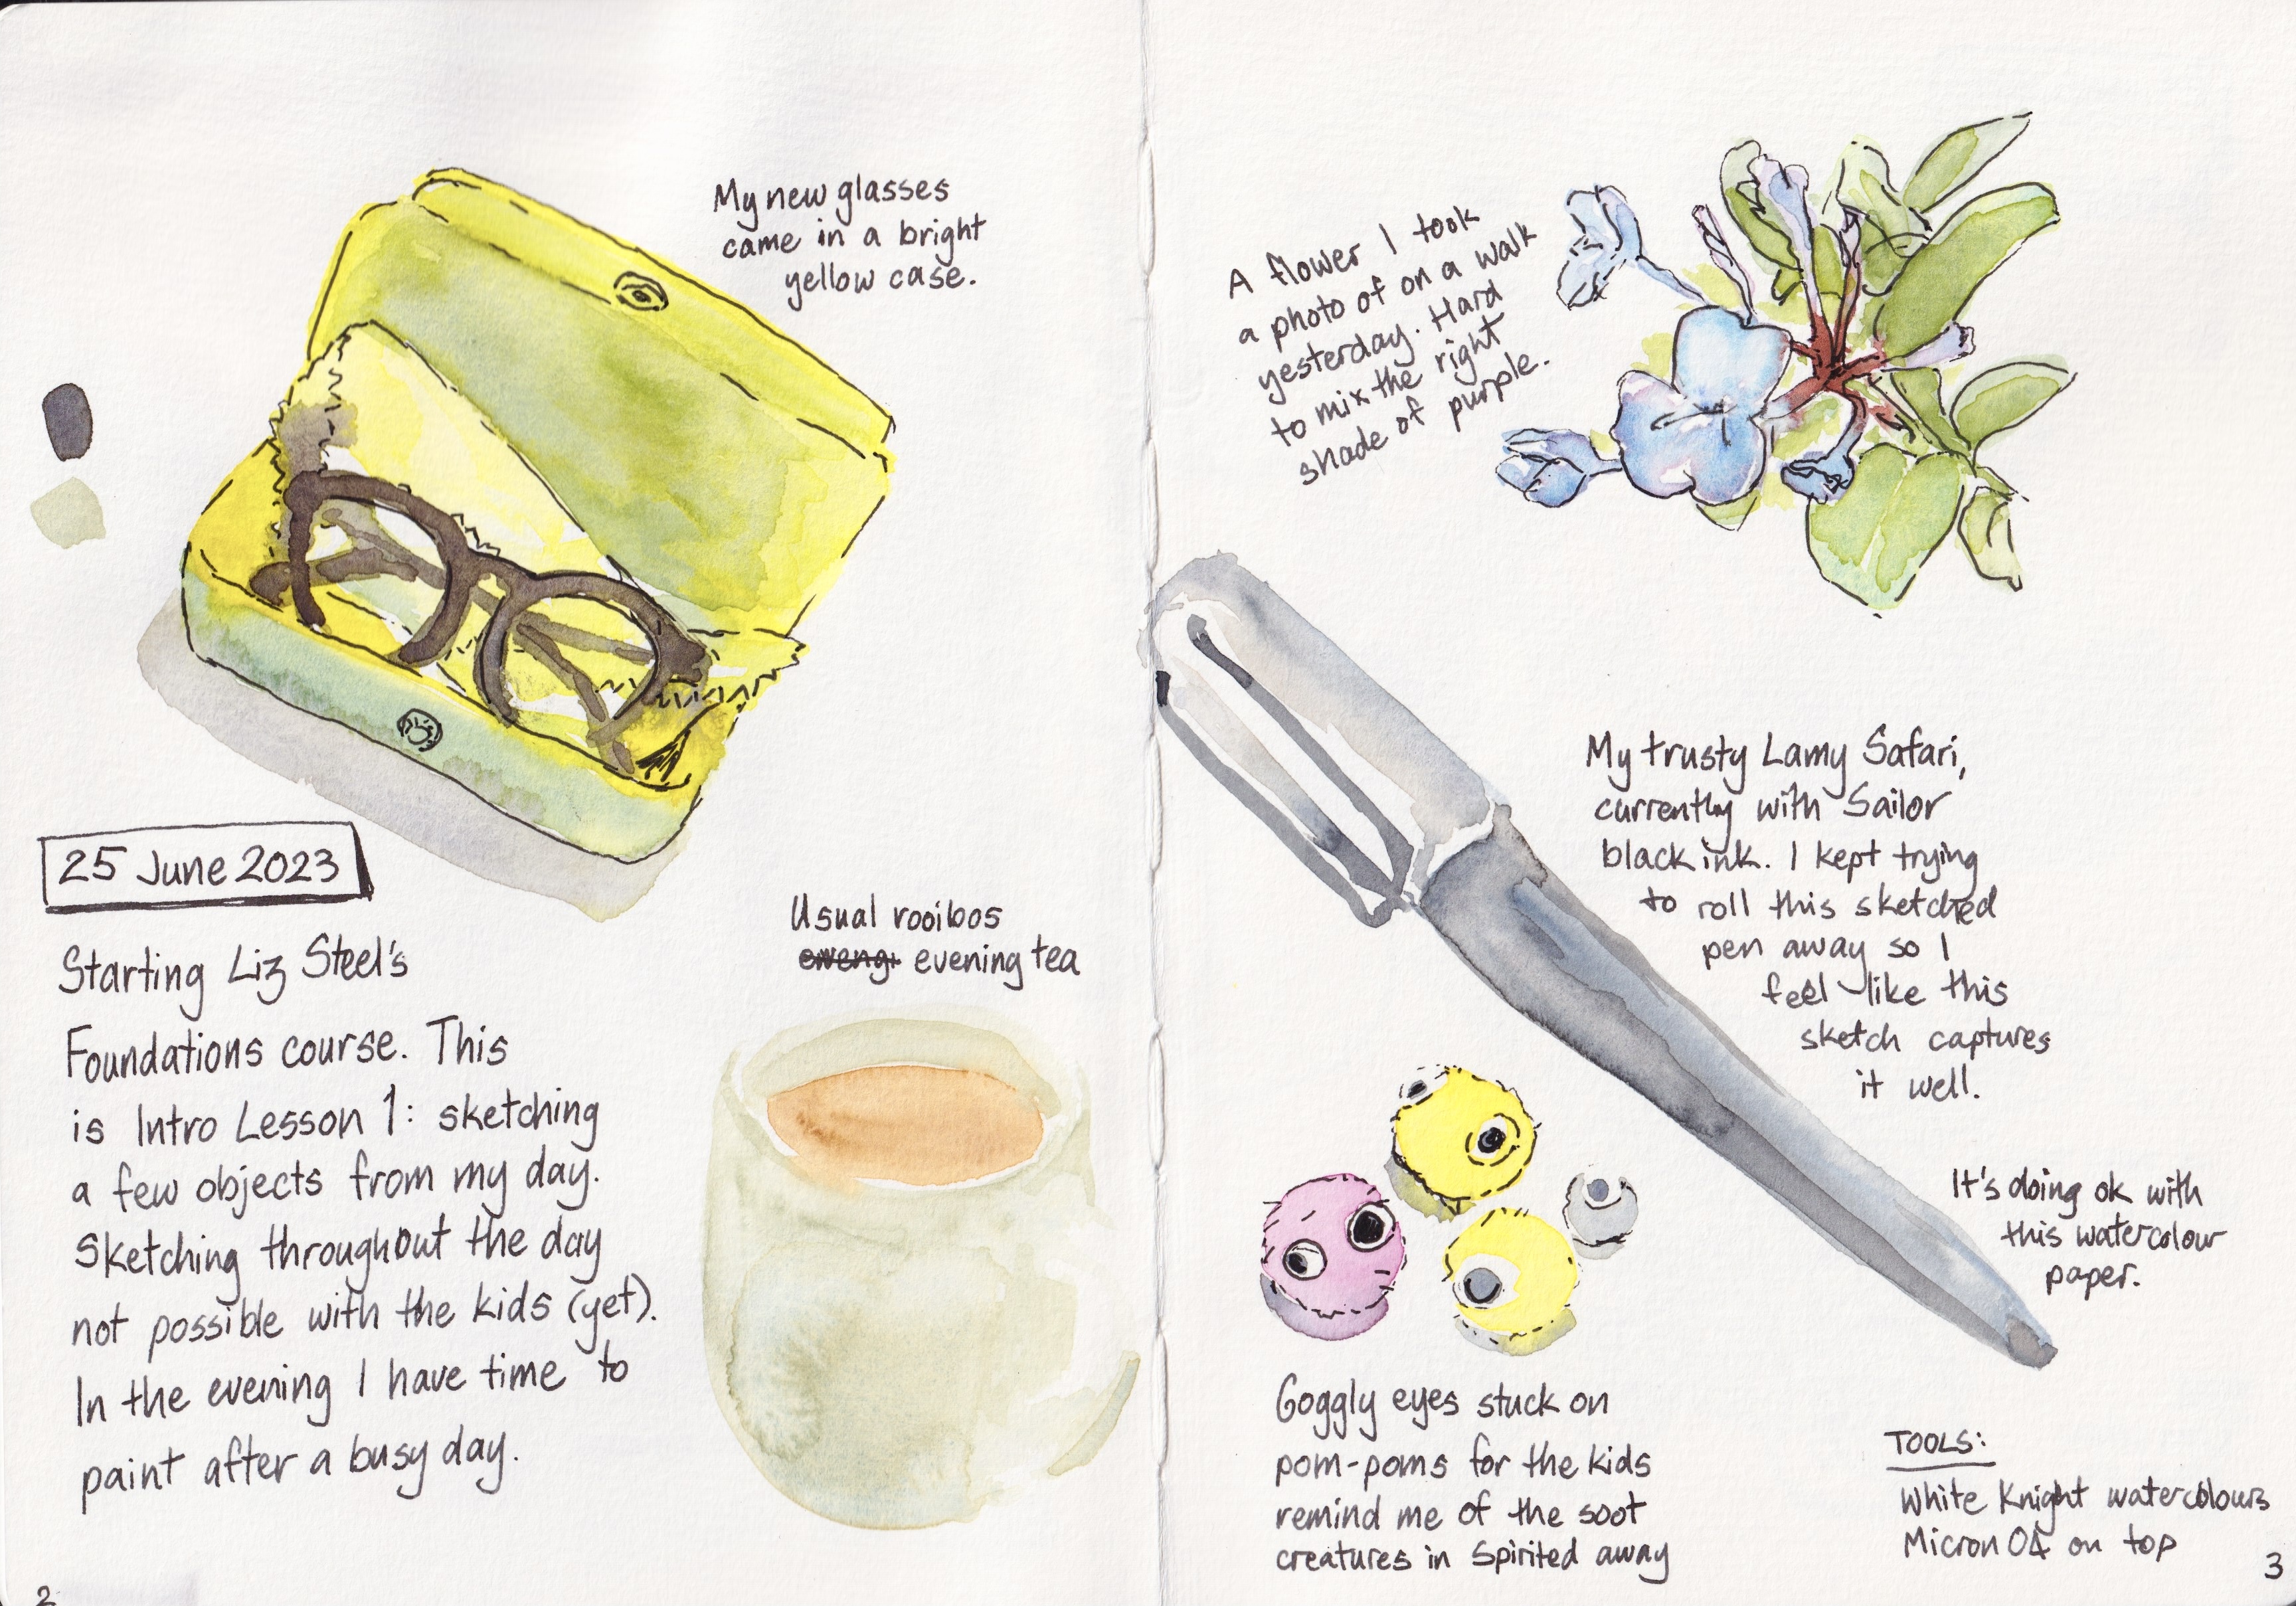 My new glasses
came in a bright
yellow case.
25 June 2023
Starting Liz Steel's
Foundations course. This
is Intro Lesson 1: sketching
a few objects from my day.
Sketching throughout the day
not possible with the kids (yet).
In the evening I have time to
paint after a busy day.
Usual rooibos
evening tea
2
A flower I took
a photo of on a walk
yesterday. Hard
to mix the right
shade of purple.
My trusty Lamy Safari,
currently with Sailor
black ink. I kept trying
to roll this sketched
pen away so I
feel like this
sketch captures
it well.
It's doing ok with
this watercolour
paper.
Goggly eyes stuck on
pom-poms for the kids
remind me of the soot
creatures in Spirited away
TOOLS:
White Knight watercolours
Micron 04 on top
3